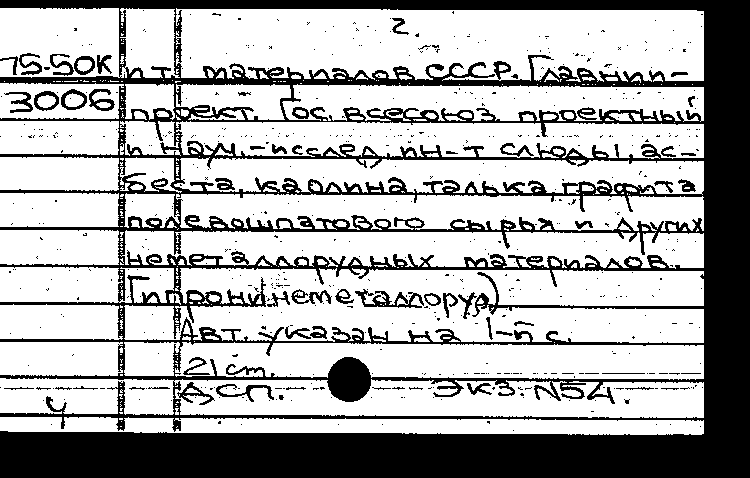 2.
75-50К п т. материалов СССР. Главнии-
3006 проект. Гос. всесоюз. проектный
и науч.-исслед. ин-т слюды, ас-
беста, каолина, талька, графита
полевошпатового сырья и других
неметаллорудных материалов.
(Гипронинеметаллоруд).
Авт. указан на 1-й с.
21 ст.
ДСП. Экз. N54.
ч